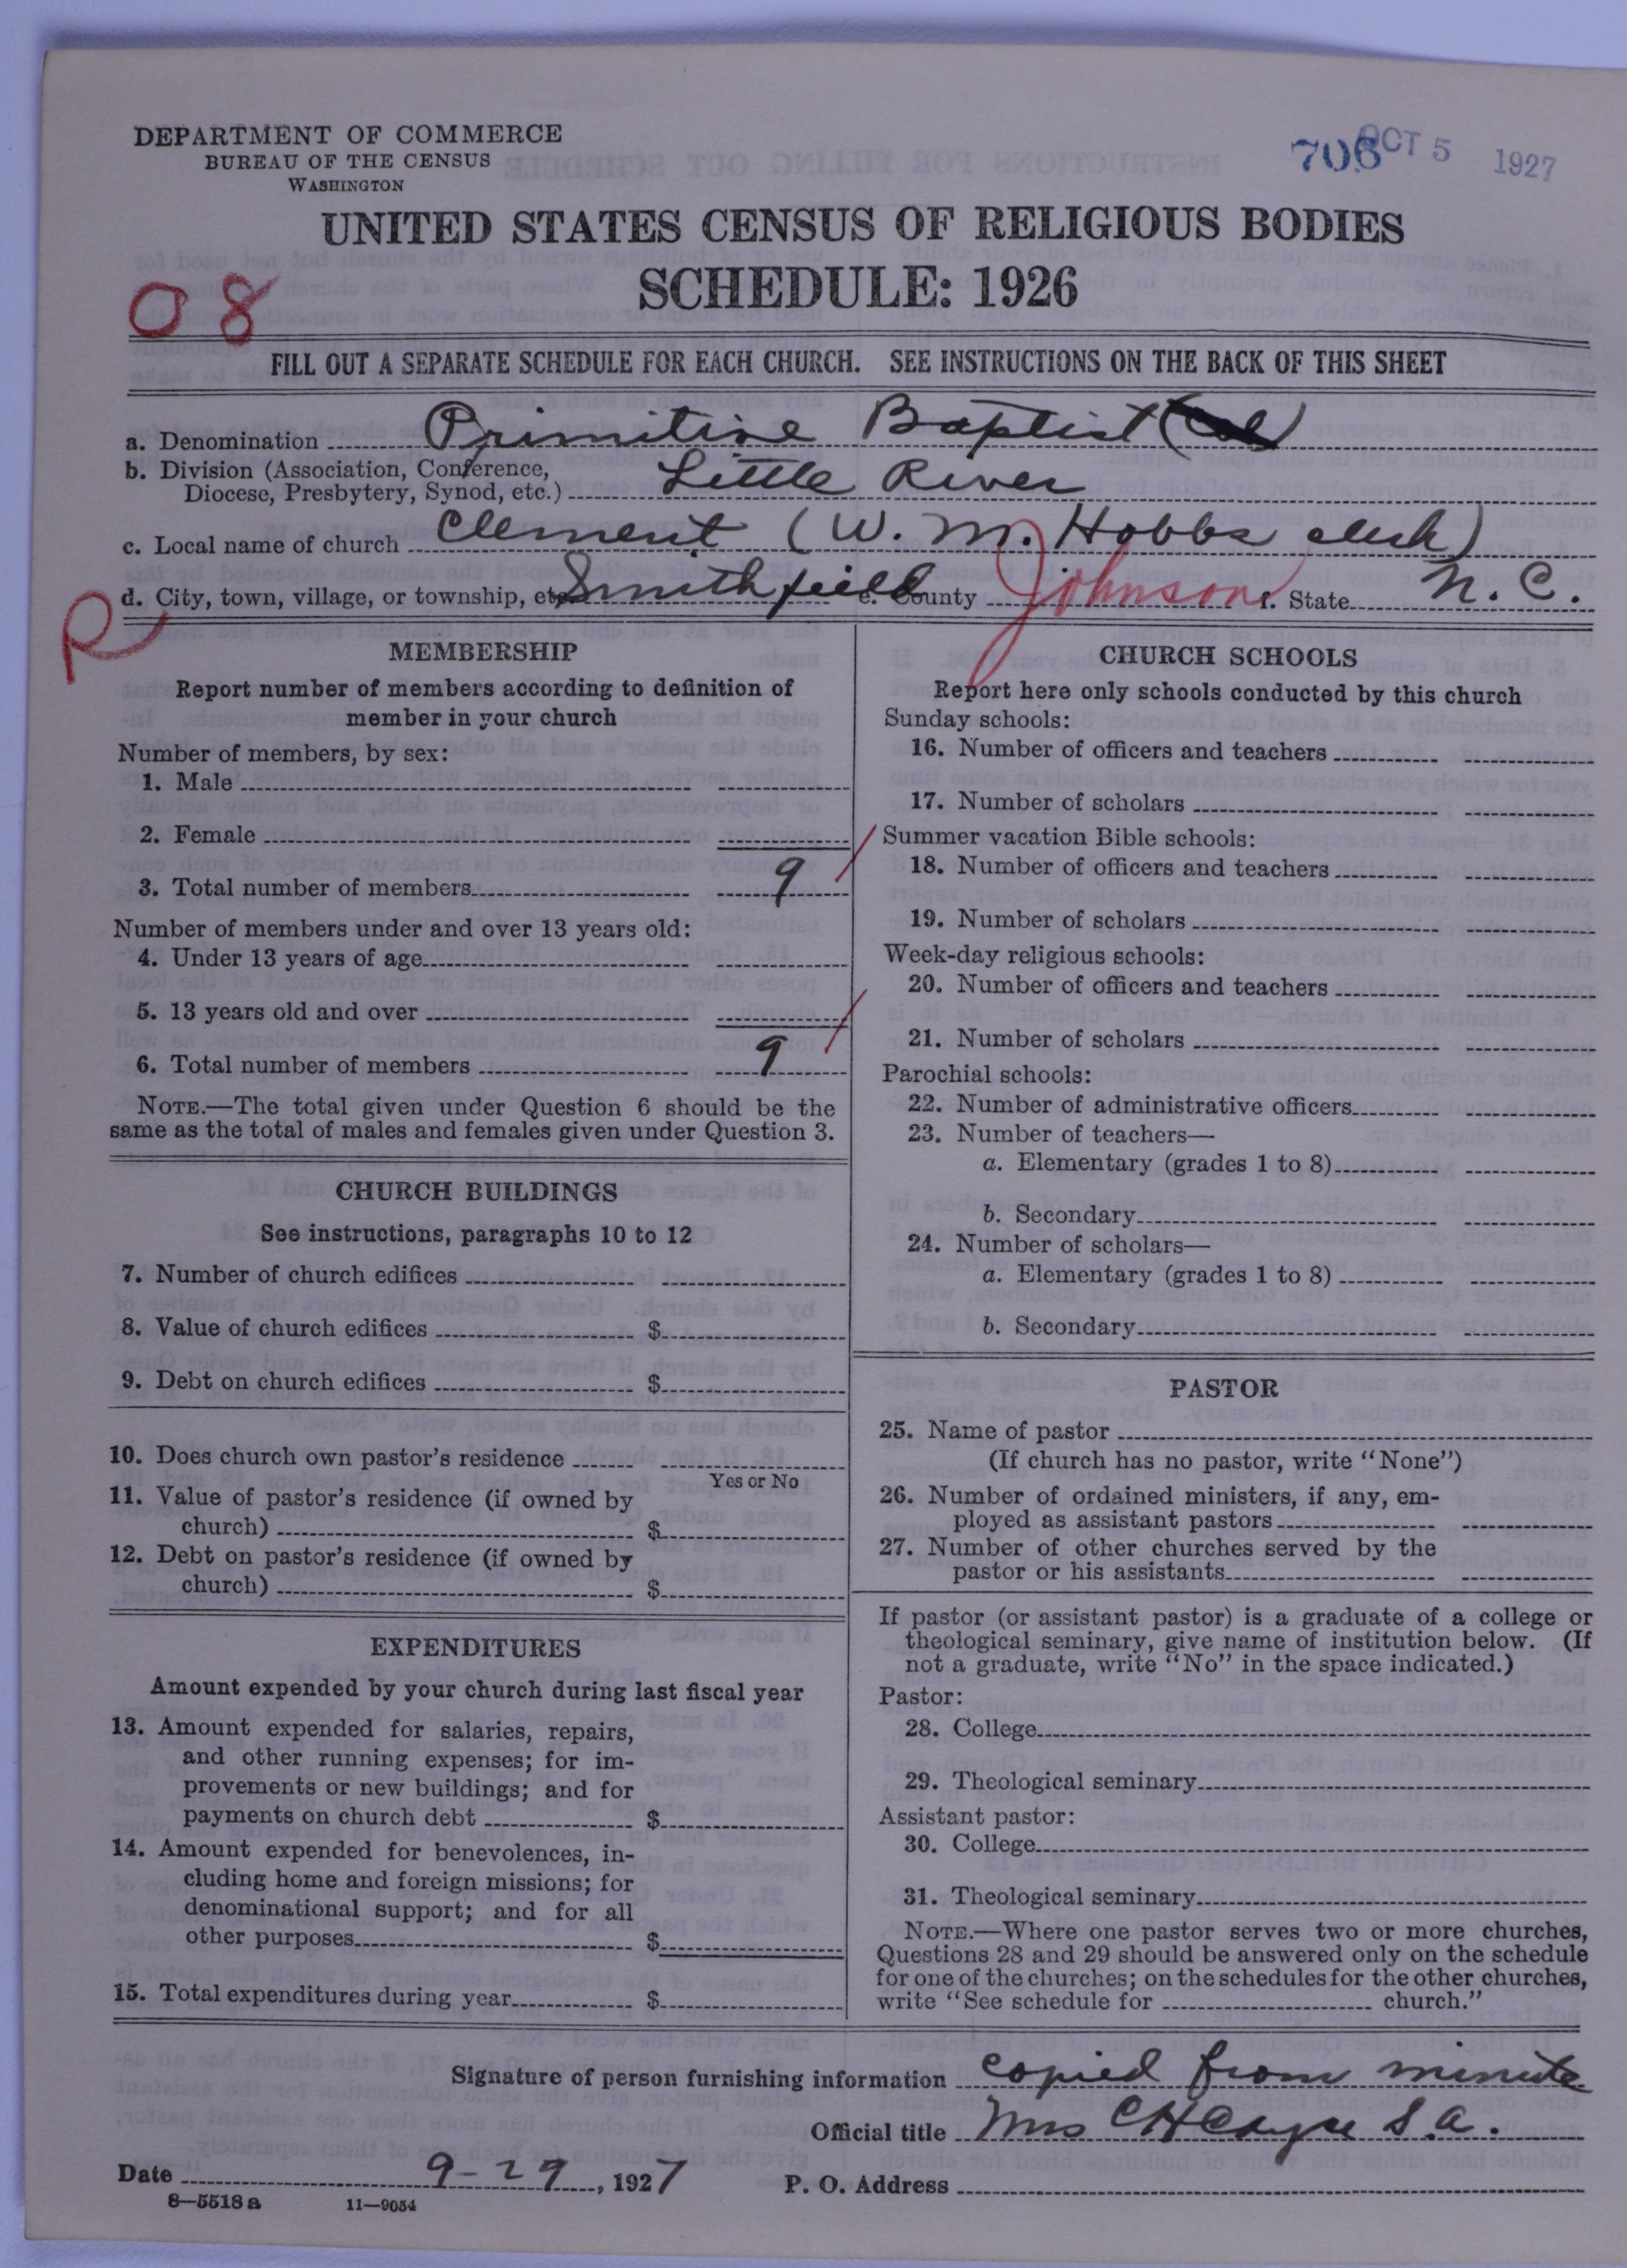 DEPARTMENT OF COMMERCE
BUREAU OF THE CENSUS
WASHINGTON
706 OCT 5 1927
UNITED STATES CENSUS OF RELIGIOUS BODIES
SCHEDULE: 1926
08
FILL OUT A SEPARATE SCHEDULE FOR EACH CHURCH. SEE INSTRUCTIONS ON THE BACK OF THIS SHEET
a. Denomination Primitive Baptist
b. Division (Association, Conference,
Diocese, Presbytery, Synod, etc.) Little River
c. Local name of church Clement (W. M. Hobbs clerk)
d. City, town, village, or township, etc. Smithfield e. County Johnson f. State N. C.
R
MEMBERSHIP
Report number of members according to definition of
member in your church
Number of members, by sex:
1. Male
2. Female
3. Total number of members 9
Number of members under and over 13 years old:
4. Under 13 years of age
5. 13 years old and over
6. Total number of members 9
NOTE.—The total given under Question 6 should be the
same as the total of males and females given under Question 3.
CHURCH BUILDINGS
See instructions, paragraphs 10 to 12
7. Number of church edifices
8. Value of church edifices $
9. Debt on church edifices $
10. Does church own pastor's residence
Yes or No
11. Value of pastor's residence (if owned by
church) $
12. Debt on pastor's residence (if owned by
church) $
EXPENDITURES
Amount expended by your church during last fiscal year
13. Amount expended for salaries, repairs,
and other running expenses; for im-
provements or new buildings; and for
payments on church debt $
14. Amount expended for benevolences, in-
cluding home and foreign missions; for
denominational support; and for all
other purposes $
15. Total expenditures during year $
CHURCH SCHOOLS
Report here only schools conducted by this church
Sunday schools:
16. Number of officers and teachers
17. Number of scholars
Summer vacation Bible schools:
18. Number of officers and teachers
19. Number of scholars
Week-day religious schools:
20. Number of officers and teachers
21. Number of scholars
Parochial schools:
22. Number of administrative officers
23. Number of teachers—
a. Elementary (grades 1 to 8)
b. Secondary
24. Number of scholars—
a. Elementary (grades 1 to 8)
b. Secondary
PASTOR
25. Name of pastor
(If church has no pastor, write "None")
26. Number of ordained ministers, if any, em-
ployed as assistant pastors
27. Number of other churches served by the
pastor or his assistants
If pastor (or assistant pastor) is a graduate of a college or
theological seminary, give name of institution below. (If
not a graduate, write "No" in the space indicated.)
Pastor:
28. College
29. Theological seminary
Assistant pastor:
30. College
31. Theological seminary
NOTE.—Where one pastor serves two or more churches,
Questions 28 and 29 should be answered only on the schedule
for one of the churches; on the schedules for the other churches,
write "See schedule for church."
Signature of person furnishing information copied from minute
Official title Mrs C H Cayce S.A.
Date 9-29, 1927 P. O. Address
8—5518 a 11—9054